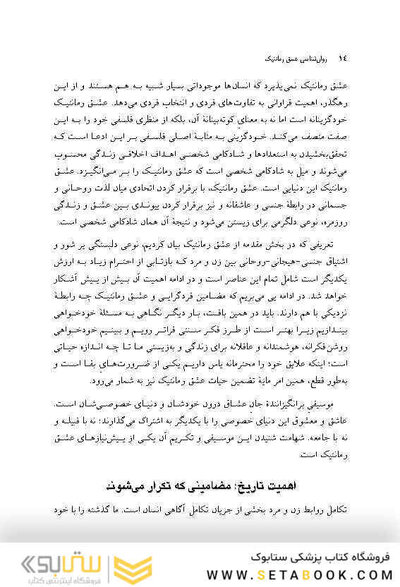 ۱۴    روان‌شناسی عشق رمانتیک
عشق رمانتیک نمی‌پذیرد که انسان‌ها موجوداتی بسیار شبیه به هم هستند و از این
رهگذر، اهمیت فراوانی به تفاوت‌های فردی و انتخاب فردی می‌دهد. عشق رمانتیک
خودگزینانه است اما نه به معنای کوته‌بینانهٔ آن، بلکه از منظری فلسفی خود را به این
صفت متصف می‌کند. خودگزینی به مثابهٔ اصلی فلسفی بر این ادعا است که
تحقق‌بخشیدن به استعدادها و شادکامی شخصی اهداف اخلاقی زندگی محسوب
می‌شوند و میل به شادکامی شخصی است که عشق رمانتیک را بر می‌انگیزد. عشق
رمانتیک این دنیایی است. عشق رمانتیک، با برقرار کردن اتحادی میان لذت روحانی و
جسمانی در رابطهٔ جنسی و عاشقانه و نیز برقرار کردن پیوندی بین عشق و زندگی
روزمره، نوعی دلگرمی برای زیستن می‌شود و نتیجهٔ آن همان شادکامی شخصی است.
تعریفی که در بخش مقدمه از عشق رمانتیک بیان کردیم، نوعی دلبستگی پر شور و
اشتیاق جنسی-هیجانی-روحانی بین زن و مرد که بازتابی از احترام زیاد به ارزش
یکدیگر است شامل تمام این عناصر است و در ادامه اهمیت آن بیش از پیش آشکار
خواهد شد. در ادامه پی می‌بریم که مضامین فردگرایی و عشق رمانتیک چه رابطهٔ
نزدیکی با هم دارند. باید در همین بافت، بار دیگر نگاهی به مسئلهٔ خودخواهی
بیندازیم زیرا بهتر است از طرز فکر سنتی فراتر رویم و ببینیم خودخواهی
روشن‌فکرانه، هوشمندانه و عاقلانه برای زندگی و به‌زیستی ما تا چه اندازه حیاتی
است؛ اینکه علایق خود را محترمانه پاس داریم یکی از ضرورت‌های بقا است و
به‌طور قطع، همین امر مایهٔ تضمین حیات عشق رمانتیک نیز به شمار می‌رود.
موسیقی برانگیزانندهٔ جان عشاق درون خودشان و دنیای خصوصی‌شان است.
عاشق و معشوق این دنیای خصوصی را با یکدیگر به اشتراک می‌گذارند؛ نه با قبیله و
نه با جامعه. شهامت شنیدن این موسیقی و تکریم آن یکی از پیش‌نیازهای عشق
رمانتیک است.
اهمیت تاریخ: مضامینی که تکرار می‌شوند
تکامل روابط زن و مرد بخشی از جریان تکامل آگاهی انسان است. ما گذشته را با خود
ستابوک
فروشگاه اینترنتی کتاب
فروشگاه کتاب پزشکی ستابوک
WWW.SETABOOK.COM